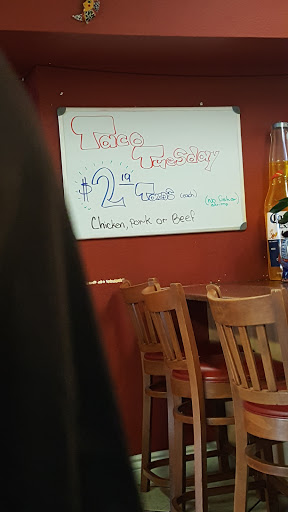 Taco
Tuesday
$2.19 Tacos (each)
Chicken, Pork or Beef